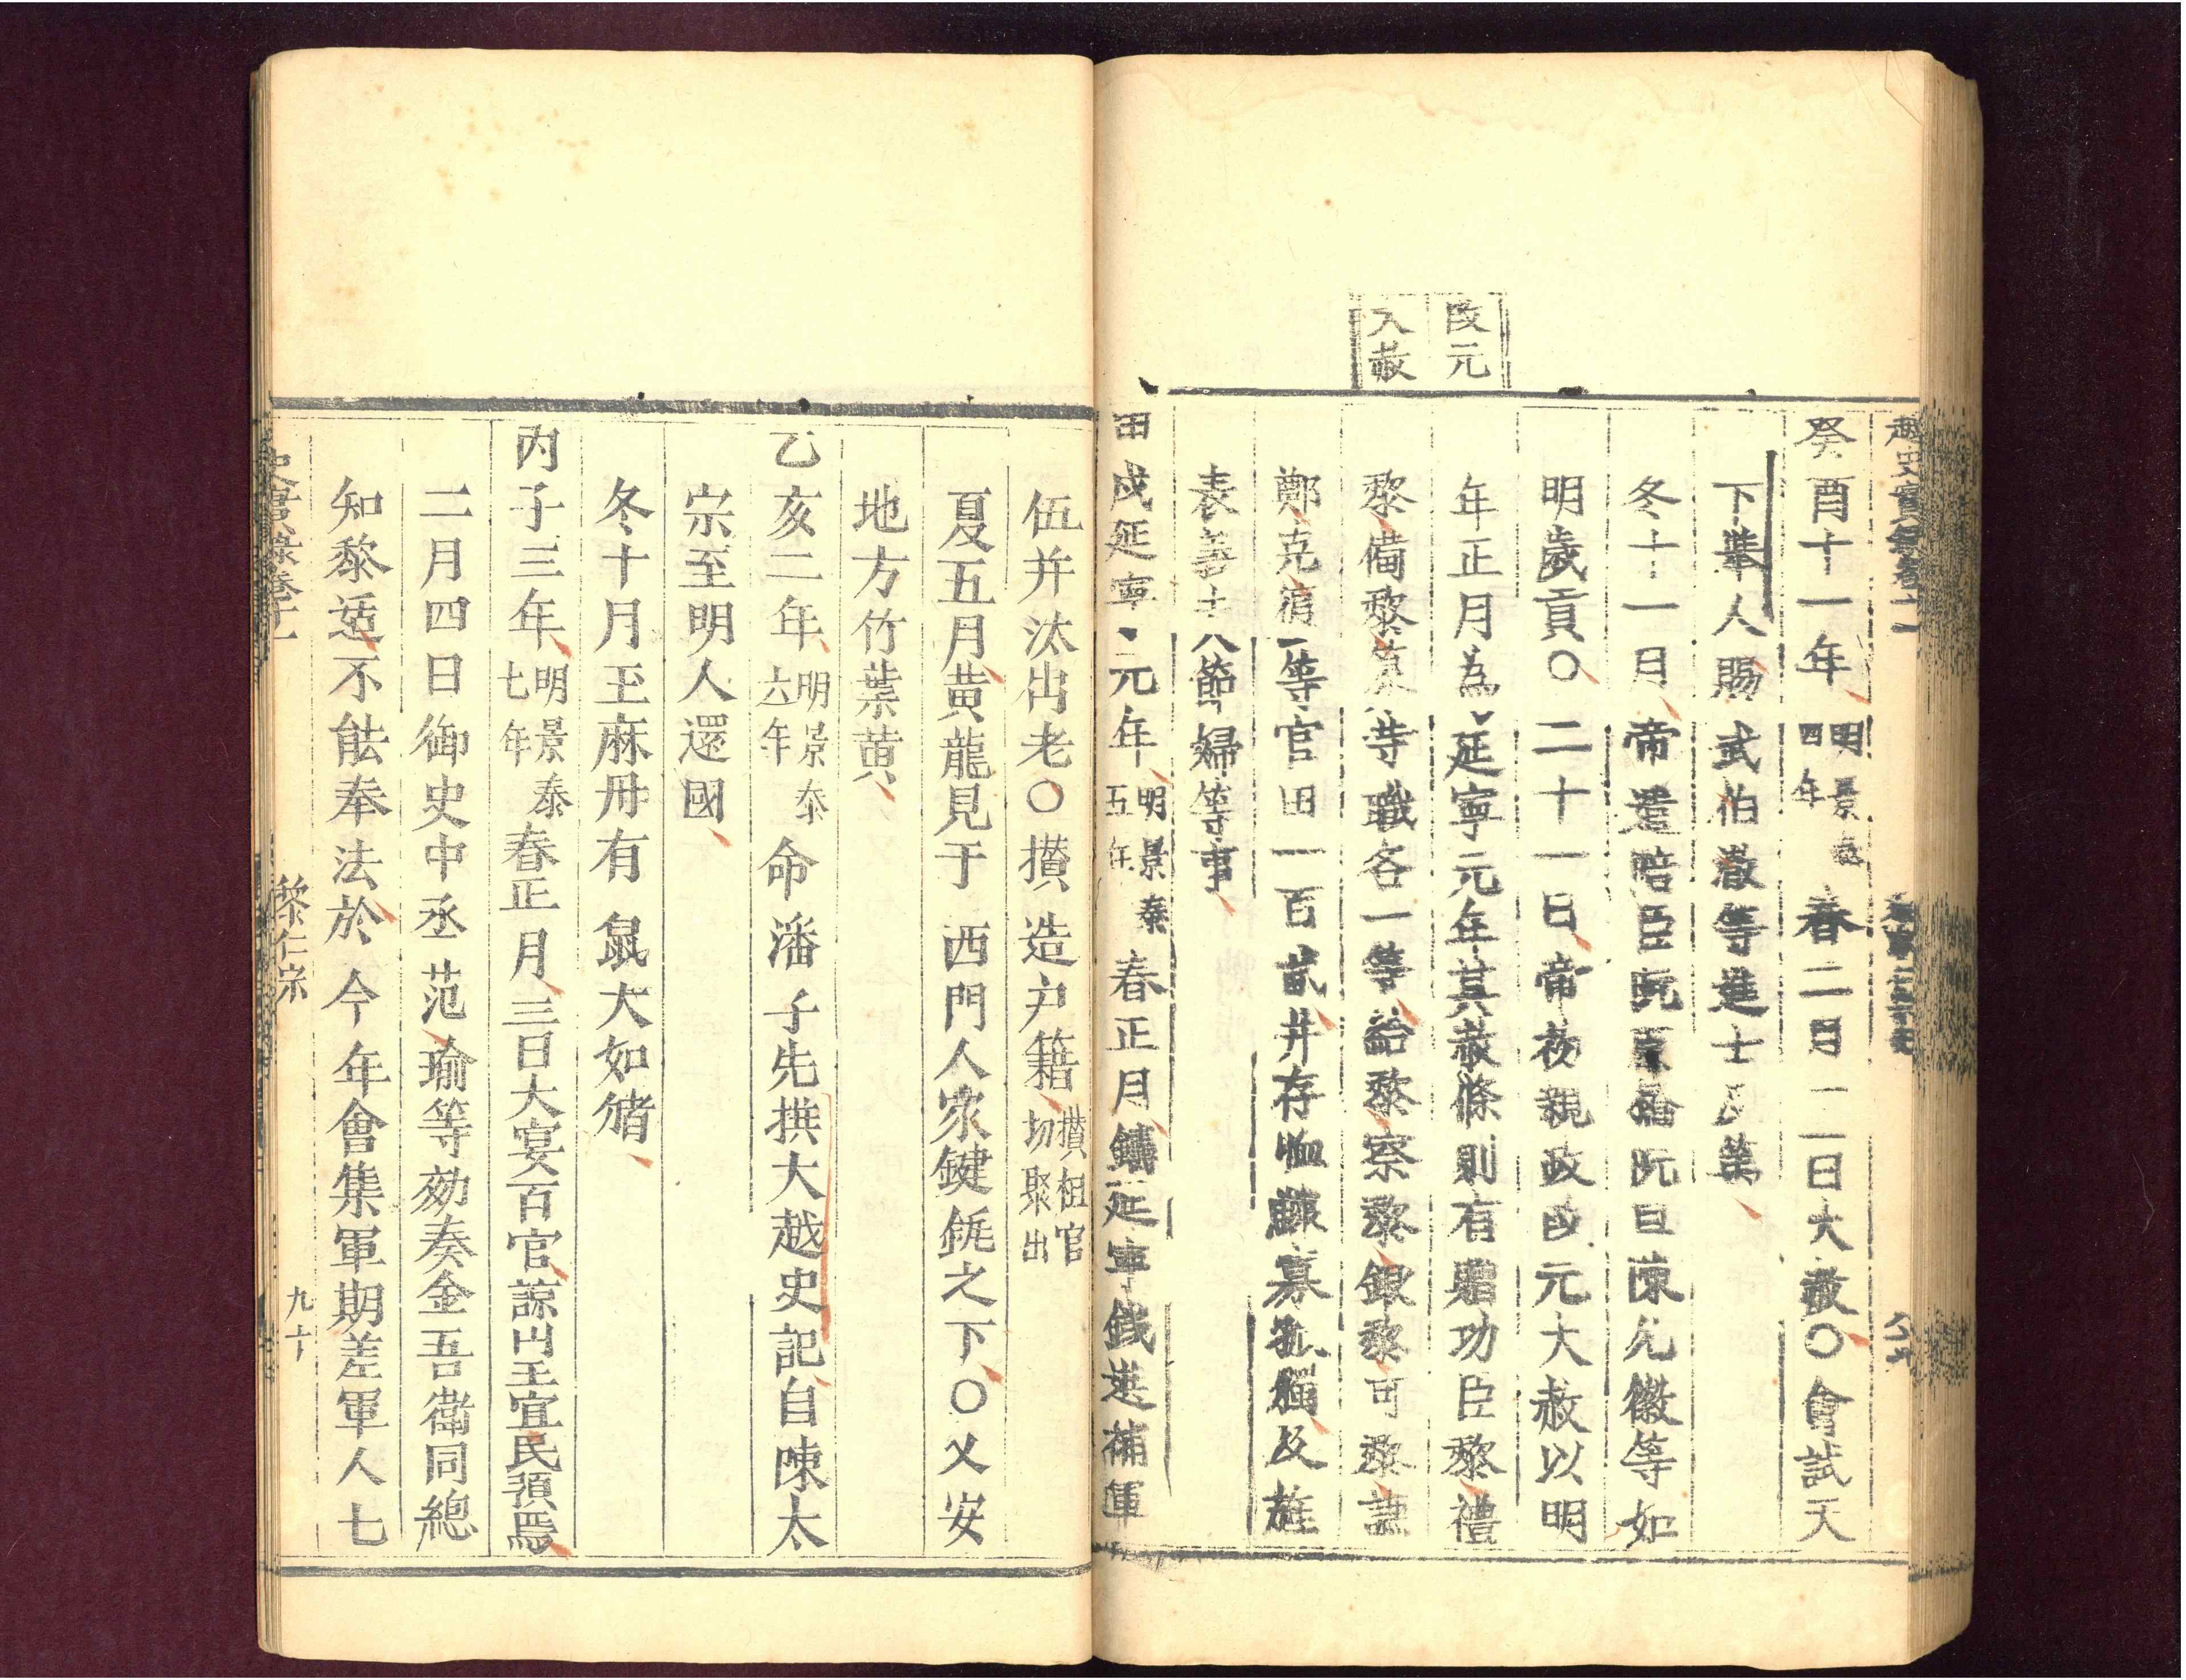 改元
大赦
癸酉十一年明景泰四年春二月二日大赦〇會試天
下舉人賜武伯澈等進士及第
冬十一月帝遣陪臣阮原橋阮旦陳允徽等如
明歲貢〇二十一日帝初親政改元大赦以明
年正月為延寧元年其赦條則有贈功臣黎禮
黎備黎等職各一等給黎察黎銀黎可黎
鄭克等官田一百貳井存恤鰥寡孤獨及旌
表善士八節婦等事
戌延寧元年明景泰五年春正月鑄延寧錢選補軍
伍并汰出老〇攅造户籍攅租官切聚出
夏五月黄龍見于西門人家鍵銚之下〇又安
地方竹葉黄
乙亥二年明景泰六年命潘孚先撰大越史記自陳太
宗至明人還國
冬十月玊麻冊有鼠大如猪
丙子三年明景泰七年春正月三日大宴百官諒山王宜民預焉
二月四日御史中丞范瑜等劾奏金吾衛同總
知黎适不能奉法於今年會集軍期差軍人七
黎仁宗
九十